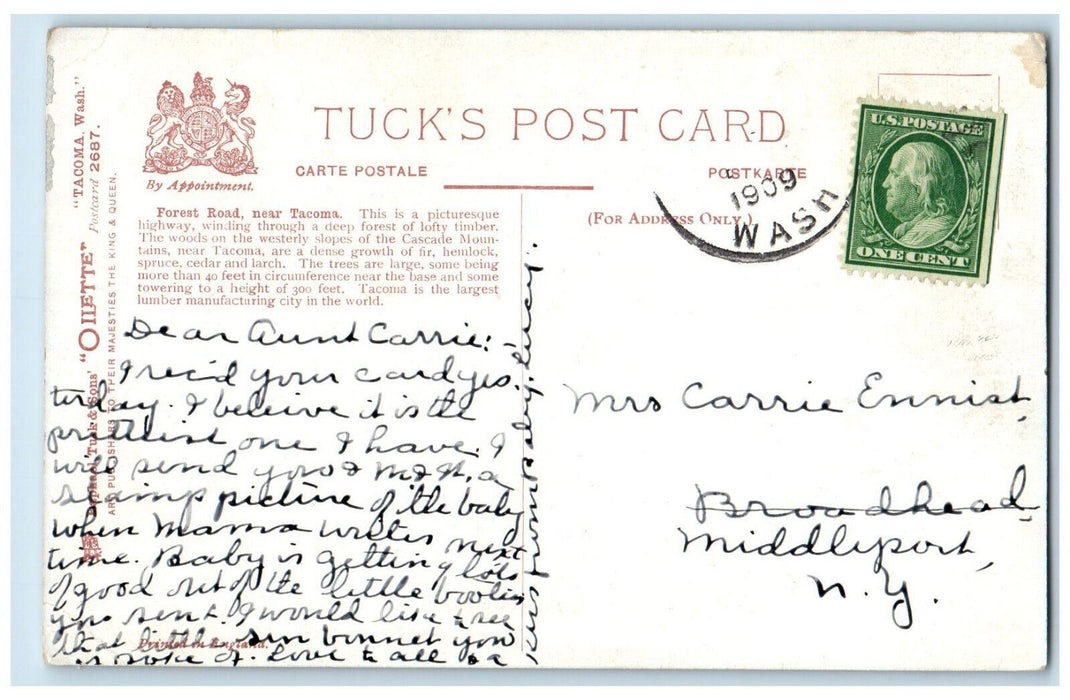 "TACOMA, Wash."
Postcard 2687.
Raphael Tuck & Sons' "OILETTE"
ART PUBLISHERS TO THEIR MAJESTIES THE KING & QUEEN.
By Appointment.
TUCK'S POST CARD
CARTE POSTALE
POSTKARTE
(FOR ADDRESS ONLY.)
1909
WASH
U.S. POSTAGE
ONE CENT
Forest Road, near Tacoma. This is a picturesque
highway, winding through a deep forest of lofty timber.
The woods on the westerly slopes of the Cascade Moun-
tains, near Tacoma, are a dense growth of fir, hemlock,
spruce, cedar and larch. The trees are large, some being
more than 40 feet in circumference near the base and some
towering to a height of 300 feet. Tacoma is the largest
lumber manufacturing city in the world.
Dear Aunt Carrie:-
I rec'd your card yes-
terday. I beleive it is the
prettiest one I have. I
will send you & M & H. a
stamp picture of the baby
when Mama writes next
time. Baby is getting lots
of good out of the little booties
you sent. I would like to see
that little sun bonnet you
spoke of. Love to all & a
kiss from Baby. Lucy.
Printed in England.
Mrs Carrie Ennist,
Broadhead
Middleport,
N.Y.